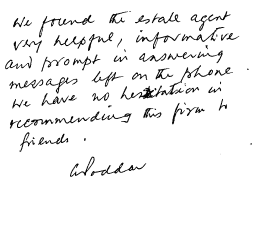 We found the estate agent
very helpful, informative
and prompt in answering
messages left on the phone.
We have no hesitation in
recommending this firm to
friends.
Poddar